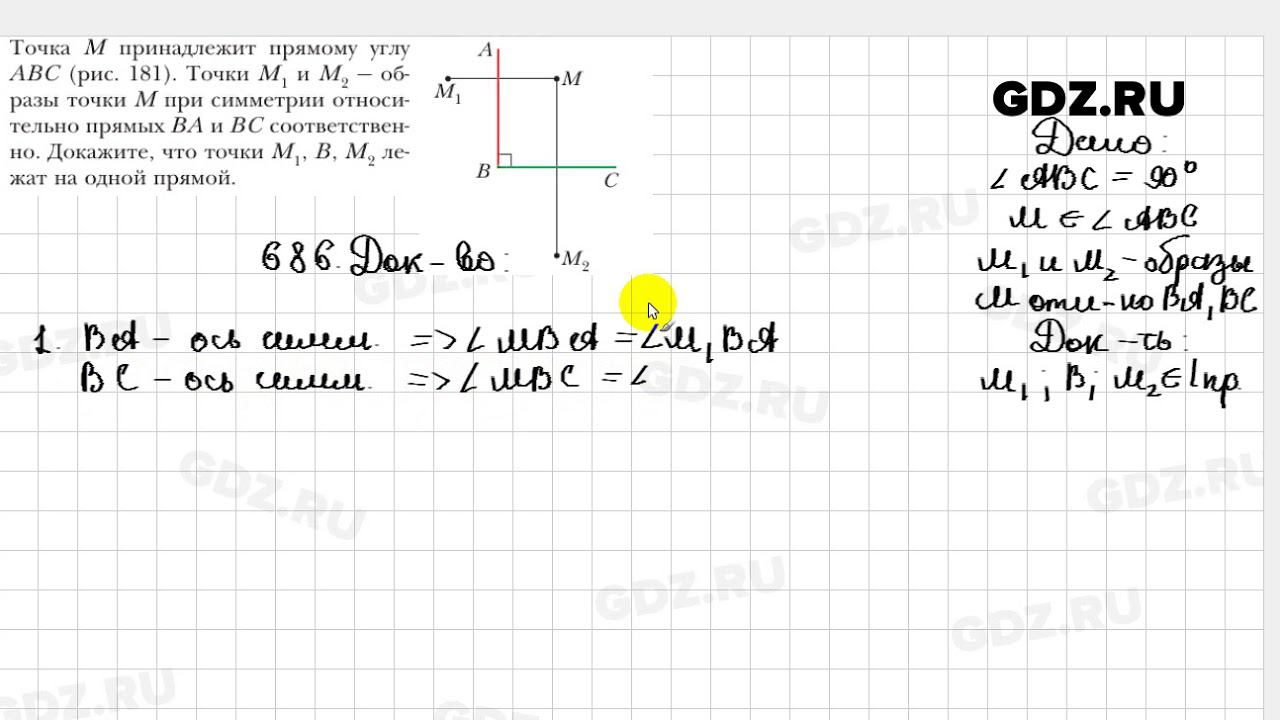 Точка M принадлежит прямому углу
ABC (рис. 181). Точки M₁ и M₂ — об-
разы точки M при симметрии относи-
тельно прямых BA и BC соответствен-
но. Докажите, что точки M₁, B, M₂ ле-
жат на одной прямой.
A
M₁
M
B
C
M₂
GDZ.RU
Дано:
∠ ABC = 90°
M ∈ ∠ ABC
M₁ и M₂ - образы
M отн-но BA, BC
Док-ть:
M₁; B; M₂ ∈ 1 пр.
686. Док-во:
1. BA - ось симм. => ∠ MBA = ∠ M₁BA
BC - ось симм. => ∠ MBC = ∠
GDZ.RU
GDZ.RU
GDZ.RU
GDZ.RU
GDZ.RU
GDZ.RU
GDZ.RU
GDZ.RU
GDZ.RU
GDZ.RU